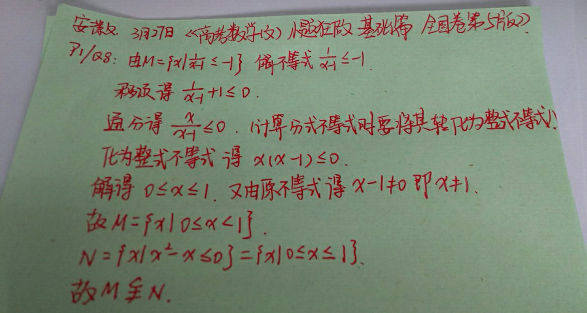 3月27日 《高考数学(文) 慢返狂做 基础篇 全国卷第5版》
P1/Q8: 由M={x|1/(x-1)≤-1} 解不等式 1/(x-1)≤-1.
移项得 1/(x-1)+1≤0.
通分得 x/(x-1)≤0. (计算分式不等式时要将其转化为整式不等式)
化为整式不等式得 x(x-1)≤0.
解得 0≤x≤1. 又由原不等式得 x-1≠0 即 x≠1.
故M={x|0≤x<1}.
N={x|x²-x≤0}={x|0≤x≤1}.
故M⫋N.